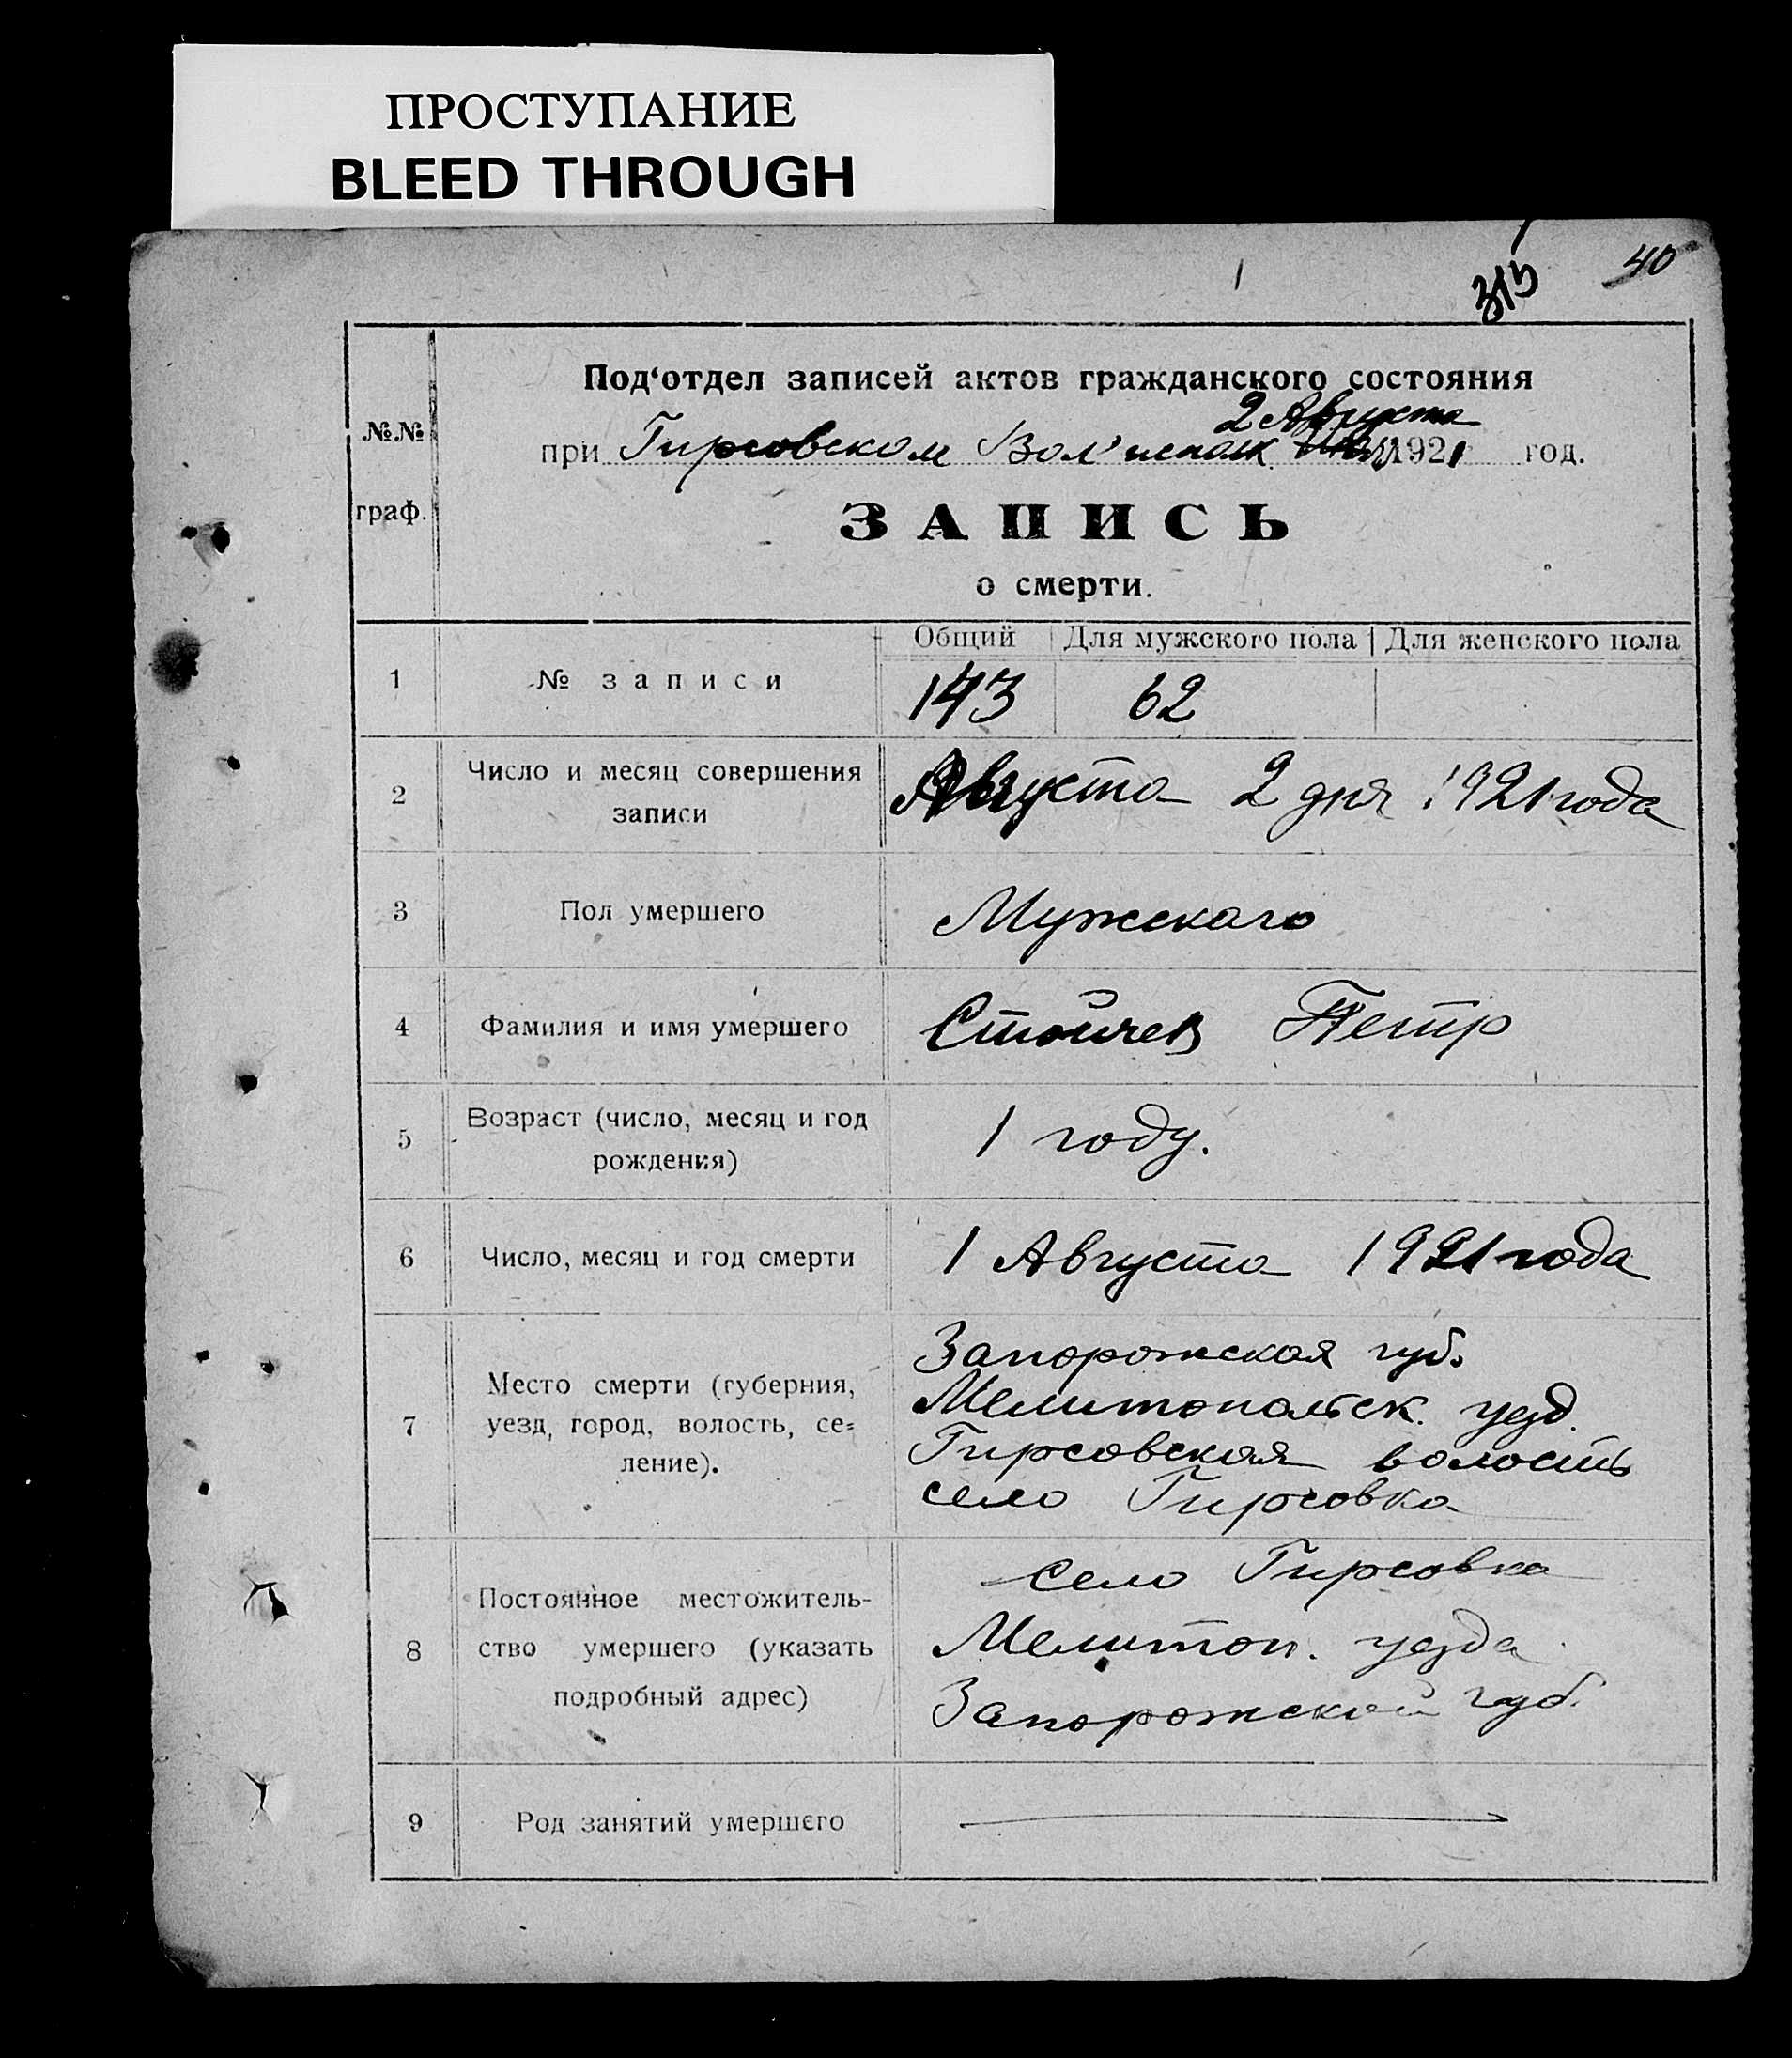 ПРОСТУПАНИЕ
BLEED THROUGH
40
315
№№
граф.
Под‘отдел записей актов гражданского состояния
2 Августа
при Гирсовском Вол'исполк 1921 год.
ЗАПИСЬ
о смерти.
Общий Для мужского пола Для женского пола
1 № записи 143 62
2 Число и месяц совершения
записи
Августа 2 дня 1921 года
3 Пол умершего Мужского
4 Фамилия и имя умершего Стойчев Петр
5 Возраст (число, месяц и год
рождения)
1 году.
6 Число, месяц и год смерти 1 Августа 1921 года
7 Место смерти (губерния,
уезд, город, волость, се=
ление).
Запорожская губ.
Мелитопольск. уезд.
Гирсовская волость
село Гирсовка
8 Постоянное местожитель-
ство умершего (указать
подробный адрес)
Село Гирсовка
Мелитоп. уезда
Запорожской губ.
9 Род занятий умершего